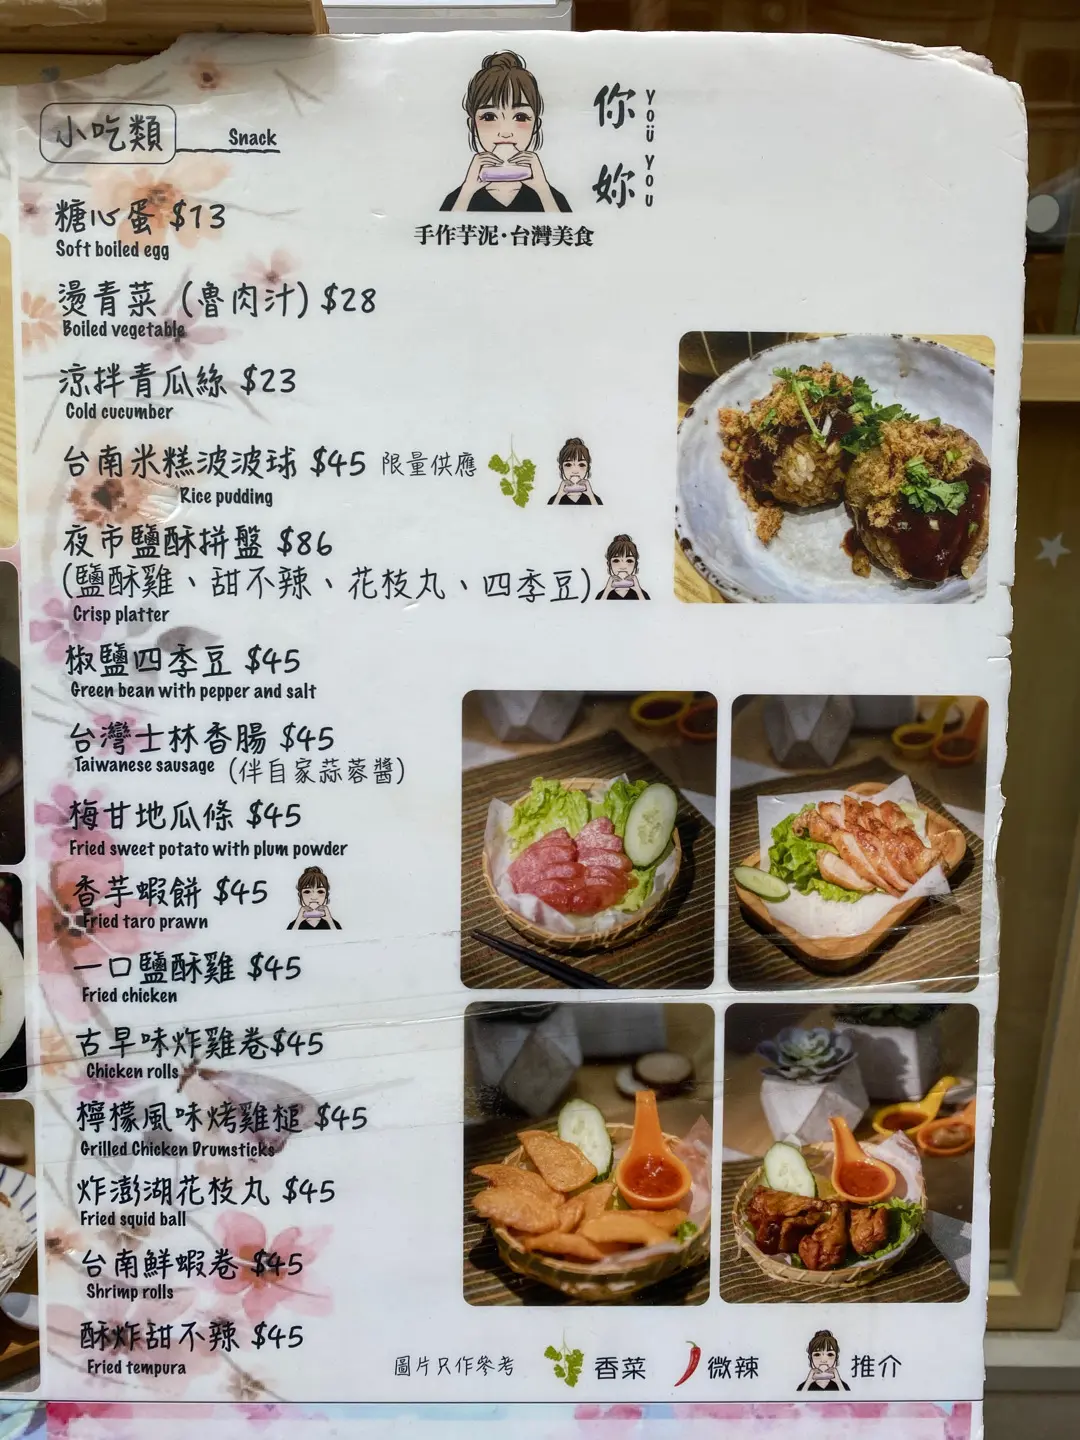 小吃類 Snack
你 YOÜ
妳 YOU
手作芋泥·台灣美食
糖心蛋 $13
Soft boiled egg
燙青菜 (魯肉汁) $28
Boiled vegetable
涼拌青瓜絲 $23
Cold cucumber
台南米糕波波球 $45 限量供應
Rice pudding
夜市鹽酥拼盤 $86
(鹽酥雞、甜不辣、花枝丸、四季豆)
Crisp platter
椒鹽四季豆 $45
Green bean with pepper and salt
台灣士林香腸 $45
Taiwanese sausage (伴自家蒜蓉醬)
梅甘地瓜條 $45
Fried sweet potato with plum powder
香芋蝦餅 $45
Fried taro prawn
一口鹽酥雞 $45
Fried chicken
古早味炸雞卷$45
Chicken rolls
檸檬風味烤雞槌 $45
Grilled Chicken Drumsticks
炸澎湖花枝丸 $45
Fried squid ball
台南鮮蝦卷 $45
Shrimp rolls
酥炸甜不辣 $45
Fried tempura
圖片只作參考 香菜 微辣 推介